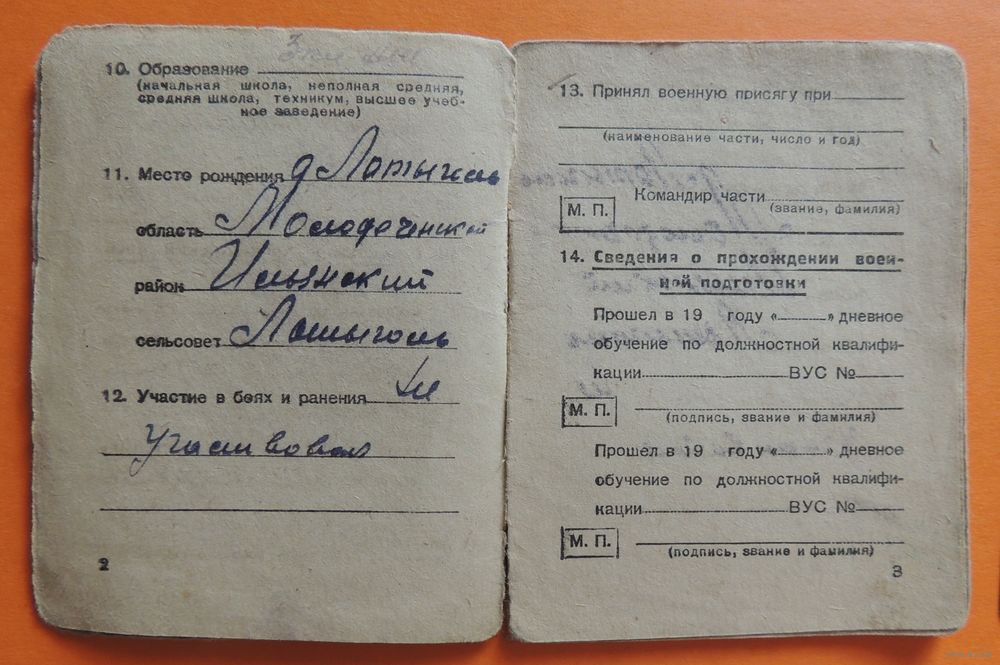 10. Образование
(начальная школа, неполная средняя,
средняя школа, техникум, высшее учеб-
ное заведение)
11. Место рождения д Латыголь
область Молодеченской
район Ильянский
сельсовет Латыголь
12. Участие в боях и ранения не
участвовал
2
13. Принял военную присягу при
(наименование части, число и год)
Командир части
М. П. (звание, фамилия)
14. Сведения о прохождении воен-
ной подготовки
Прошел в 19 году « » дневное
обучение по должностной квалифи-
кации ВУС №
М. П. (подпись, звание и фамилия)
Прошел в 19 году « » дневное
обучение по должностной квалифи-
кации ВУС №
М. П. (подпись, звание и фамилия)
3